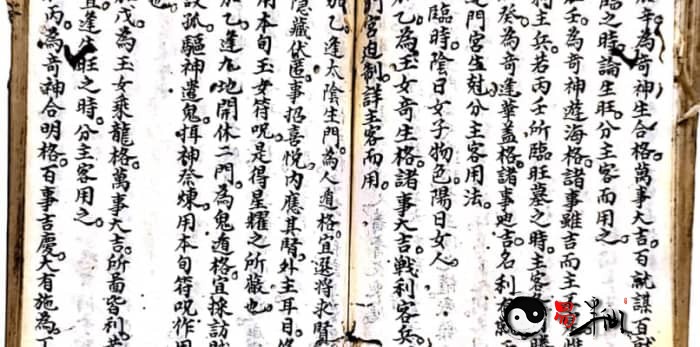 辛為奇神生合格。萬事大吉。百就謀百就
臨之時論生旺。分主客而用之
壬為奇神遊海格。諸事雖吉而主
利主兵。若丙壬所臨旺墓之時。主客 勝
癸為奇逢華蓋格。諸事 吉名利
門宮生尅分主客用法。
臨時陰日女子物色陽日女人。
乙為玉女奇生格。諸事大吉。戰利客兵。
門宮迫制詳主客而用。
加乙逢太陰生門。為人遁格。宜選將求賢
隱藏伏匿事招喜悅。內應其賢。外主耳目。
用本旬玉女符呪。是得星耀之所蔽也。
加乙逢九地開休二門。為鬼遁格。宜採訪賊
設孤驅神遣鬼。揖神祭煉。用本旬符呪作用
戊為玉女乘龍格。萬事大吉。所啚皆利。若
宜逢 旺之時。分主客用之。
丙為奇神合明格。百事吉慶。大有施為。丁